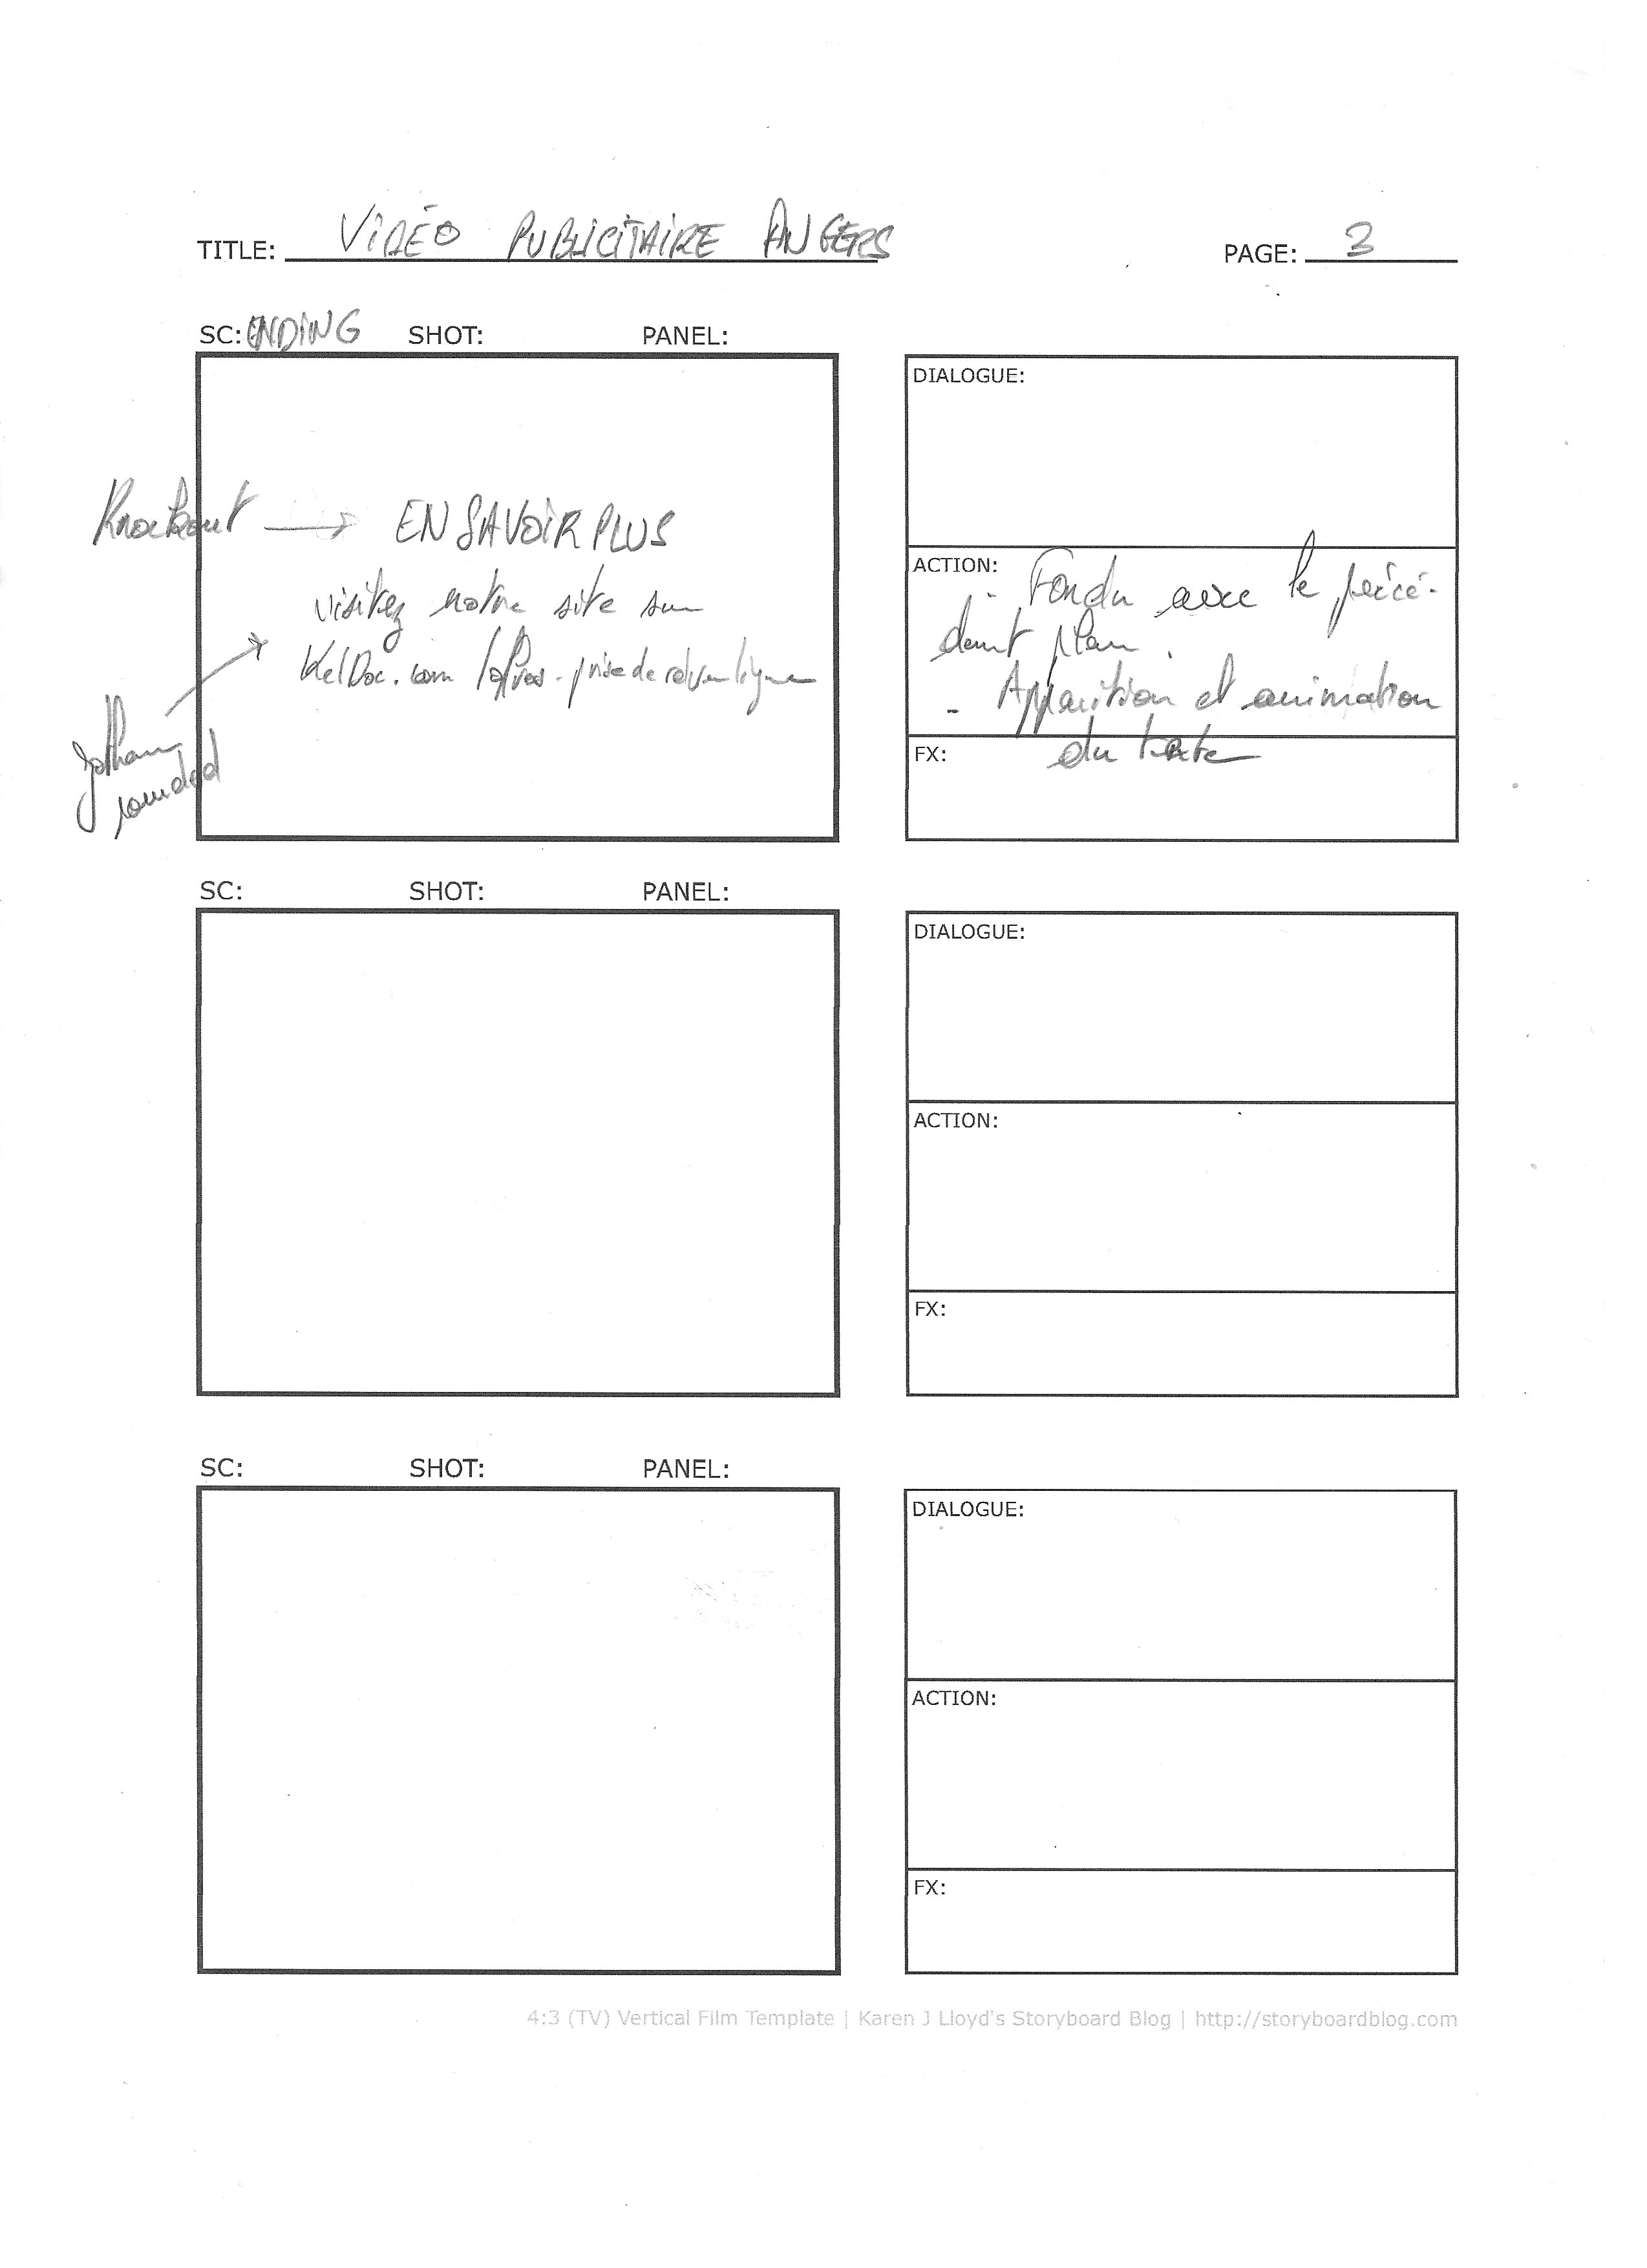 TITLE: VIDÉO PUBLICITAIRE ANGERS
PAGE: 3
SC: ENDING SHOT: PANEL:
DIALOGUE:
Knockout → EN SAVOIR PLUS
visitez notre site sur
KelDoc.com/offres-prise de rdv en ligne
Gotham
rounded
ACTION: - Fondu avec le précé-
dent plan.
- Apparition et animation
du texte
FX:
SC: SHOT: PANEL:
DIALOGUE:
ACTION:
FX:
SC: SHOT: PANEL:
DIALOGUE:
ACTION:
FX:
4:3 (TV) Vertical Film Template | Karen J Lloyd's Storyboard Blog | http://storyboardblog.com